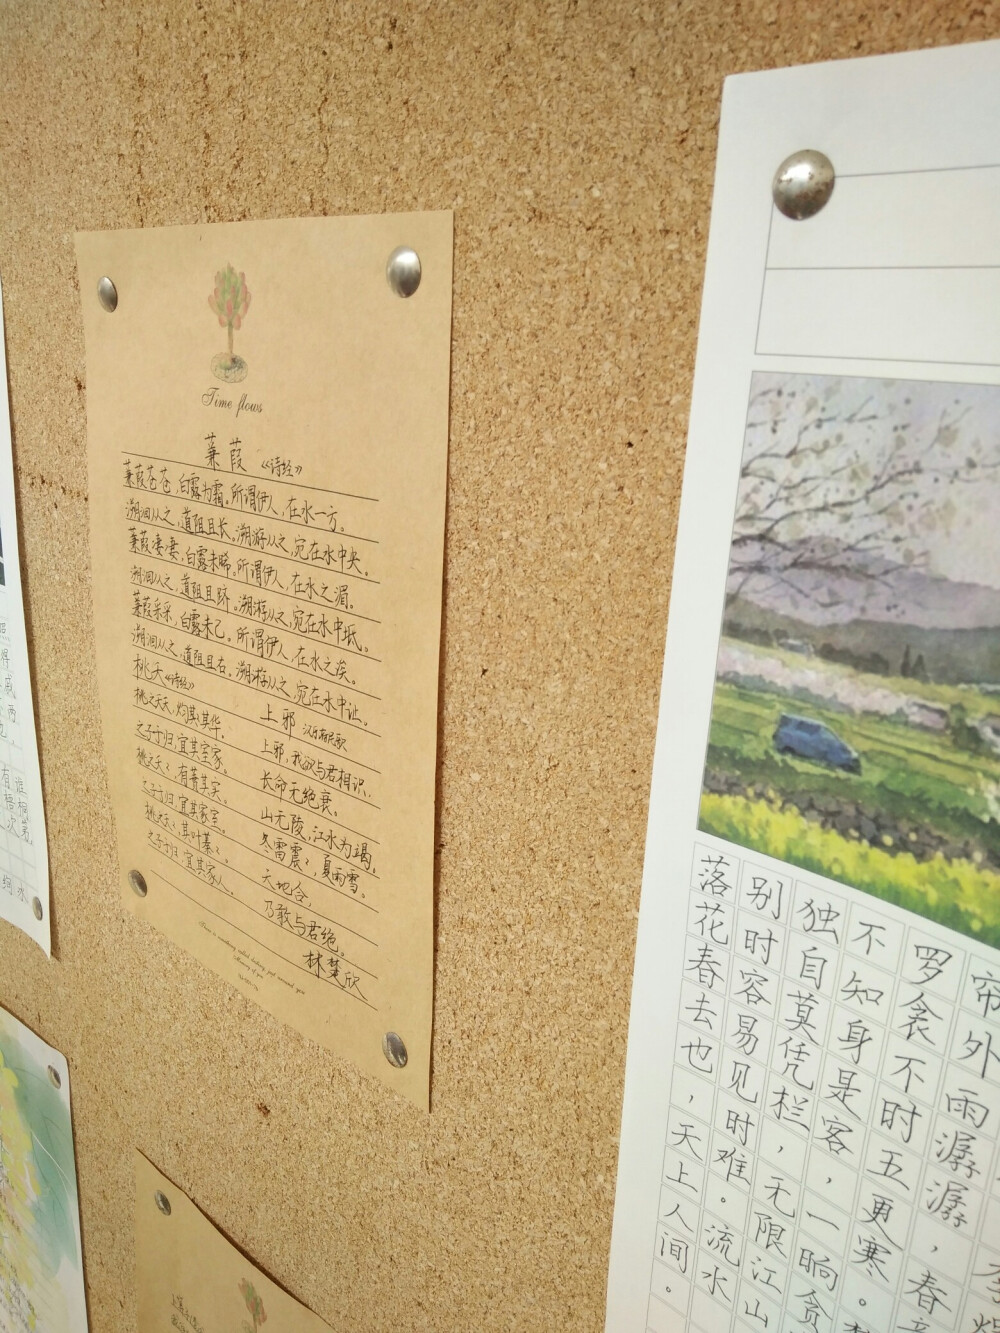 Time flows
蒹葭 《诗经》
蒹葭苍苍,白露为霜。所谓伊人,在水一方。
溯洄从之,道阻且长。溯游从之,宛在水中央。
蒹葭凄凄,白露未晞。所谓伊人,在水之湄。
溯洄从之,道阻且跻。溯游从之,宛在水中坻。
蒹葭采采,白露未已。所谓伊人,在水之涘。
溯洄从之,道阻且右。溯游从之,宛在水中沚。
桃夭《诗经》
桃之夭夭,灼其其华。
之子于归,宜其室家。
桃之夭々,有蕡其实。
之子于归,宜其家室。
桃之夭々,其叶蓁々。
之子于归,宜其家人。
上邪 汉乐府民歌
上邪,我欲与君相识,
长命无绝衰。
山无陵,江水为竭,
冬雷震々,夏雨雪。
天地合,
乃敢与君绝。
林楚欣
帘外雨潺潺,春
罗衾不时五更寒。
不知身是客,一晌贪
独自莫凭栏,无限江山
别时容易见时难。流水
落花春去也,天上人间。